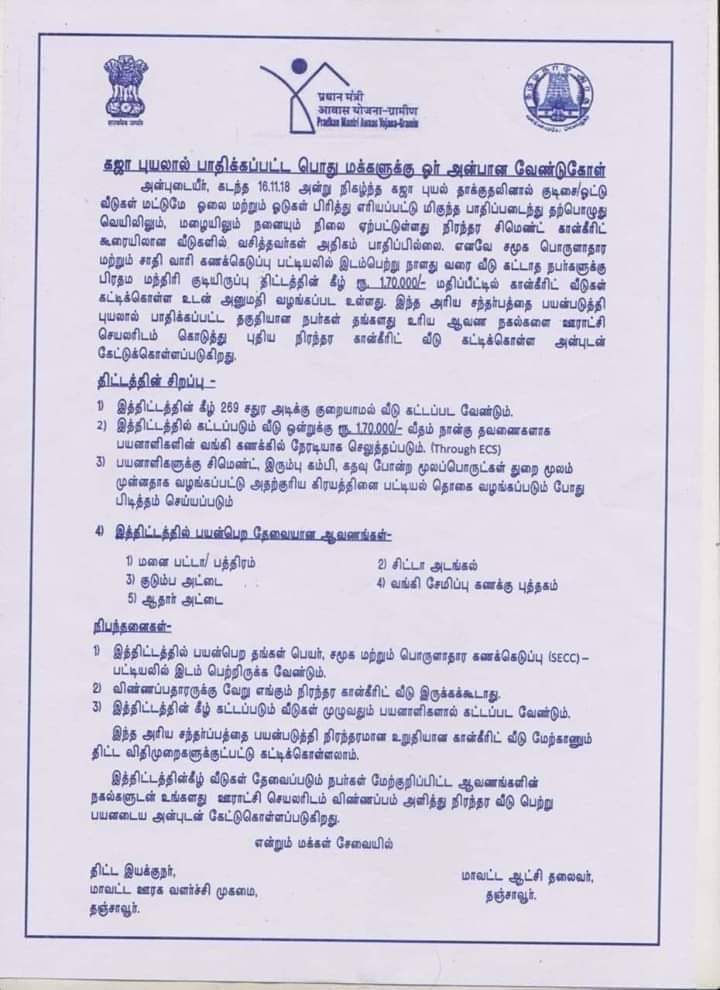 सत्यमेव जयते
प्रधान मंत्री
आवास योजना-ग्रामीण
Pradhan Mantri Awaas Yojana-Gramin
கஜா புயலால் பாதிக்கப்பட்ட பொது மக்களுக்கு ஓர் அன்பான வேண்டுகோள்
அன்புடையீர், கடந்த 16.11.18 அன்று நிகழ்ந்த கஜா புயல் தாக்குதலினால் குடிசை/ஓட்டு
வீடுகள் மட்டுமே ஓலை மற்றும் ஓடுகள் பிரித்து எரியப்பட்டு மிகுந்த பாதிப்படைந்து தற்பொழுது
வெயிலிலும், மழையிலும் நனையும் நிலை ஏற்பட்டுள்ளது நிரந்தர சிமெண்ட் கான்கிரீட்
கூரையிலான வீடுகளில் வசித்தவர்கள் அதிகம் பாதிப்பில்லை. எனவே சமூக பொருளாதார
மற்றும் சாதி வாரி கணக்கெடுப்பு பட்டியலில் இடம்பெற்று நாளது வரை வீடு கட்டாத நபர்களுக்கு
பிரதம மந்திரி குடியிருப்பு திட்டத்தின் கீழ் ரூ. 1,70,000/- மதிப்பீட்டில் கான்கீரிட் வீடுகள்
கட்டிக்கொள்ள உடன் அனுமதி வழங்கப்பட உள்ளது. இந்த அரிய சந்தர்பத்தை பயன்படுத்தி
புயலால் பாதிக்கப்பட்ட தகுதியான நபர்கள் தங்களது உரிய ஆவண நகல்களை ஊராட்சி
செயலரிடம் கொடுத்து புதிய நிரந்தர கான்கீரிட் வீடு கட்டிக்கொள்ள அன்புடன்
கேட்டுக்கொள்ளப்படுகிறது.
திட்டத்தின் சிறப்பு -
1) இத்திட்டத்தின் கீழ் 269 சதுர அடிக்கு குறையாமல் வீடு கட்டப்பட வேண்டும்.
2) இத்திட்டத்தில் கட்டப்படும் வீடு ஒன்றுக்கு ரூ. 1,70,000/- வீதம் நான்கு தவணைகளாக
பயனாளிகளின் வங்கி கணக்கில் நேரடியாக செலுத்தப்படும். (Through ECS)
3) பயனாளிகளுக்கு சிமெண்ட், இரும்பு கம்பி, கதவு போன்ற மூலப்பொருட்கள் துறை மூலம்
முன்னதாக வழங்கப்பட்டு அதற்குரிய கிரயத்தினை பட்டியல் தொகை வழங்கப்படும் போது
பிடித்தம் செய்யப்படும்
4) இத்திட்டத்தில் பயன்பெற தேவையான ஆவணங்கள்-
1) மனை பட்டா/ பத்திரம் 2) சிட்டா அடங்கல்
3) குடும்ப அட்டை 4) வங்கி சேமிப்பு கணக்கு புத்தகம்
5) ஆதார் அட்டை
நிபந்தனைகள்-
1) இத்திட்டத்தில் பயன்பெற தங்கள் பெயர், சமூக மற்றும் பொருளாதார கணக்கெடுப்பு (SECC) –
பட்டியலில் இடம் பெற்றிருக்க வேண்டும்.
2) விண்ணப்பதாரருக்கு வேறு எங்கும் நிரந்தர கான்கீரிட் வீடு இருக்கக்கூடாது.
3) இத்திட்டத்தின் கீழ் கட்டப்படும் வீடுகள் முழுவதும் பயனாளிகளால் கட்டப்பட வேண்டும்.
இந்த அரிய சந்தர்ப்பத்தை பயன்படுத்தி நிரந்தரமான உறுதியான கான்கீரிட் வீடு மேற்காணும்
திட்ட விதிமுறைகளுக்குட்பட்டு கட்டிக்கொள்ளலாம்.
இத்திட்டத்தின்கீழ் வீடுகள் தேவைப்படும் நபர்கள் மேற்குறிப்பிட்ட ஆவணங்களின்
நகல்களுடன் உங்களது ஊராட்சி செயலரிடம் விண்ணப்பம் அளித்து நிரந்தர வீடு பெற்று
பயனடைய அன்புடன் கேட்டுக்கொள்ளப்படுகிறது.
என்றும் மக்கள் சேவையில்
திட்ட இயக்குநர், மாவட்ட ஆட்சி தலைவர்,
மாவட்ட ஊரக வளர்ச்சி முகமை, தஞ்சாவூர்.
தஞ்சாவூர்.